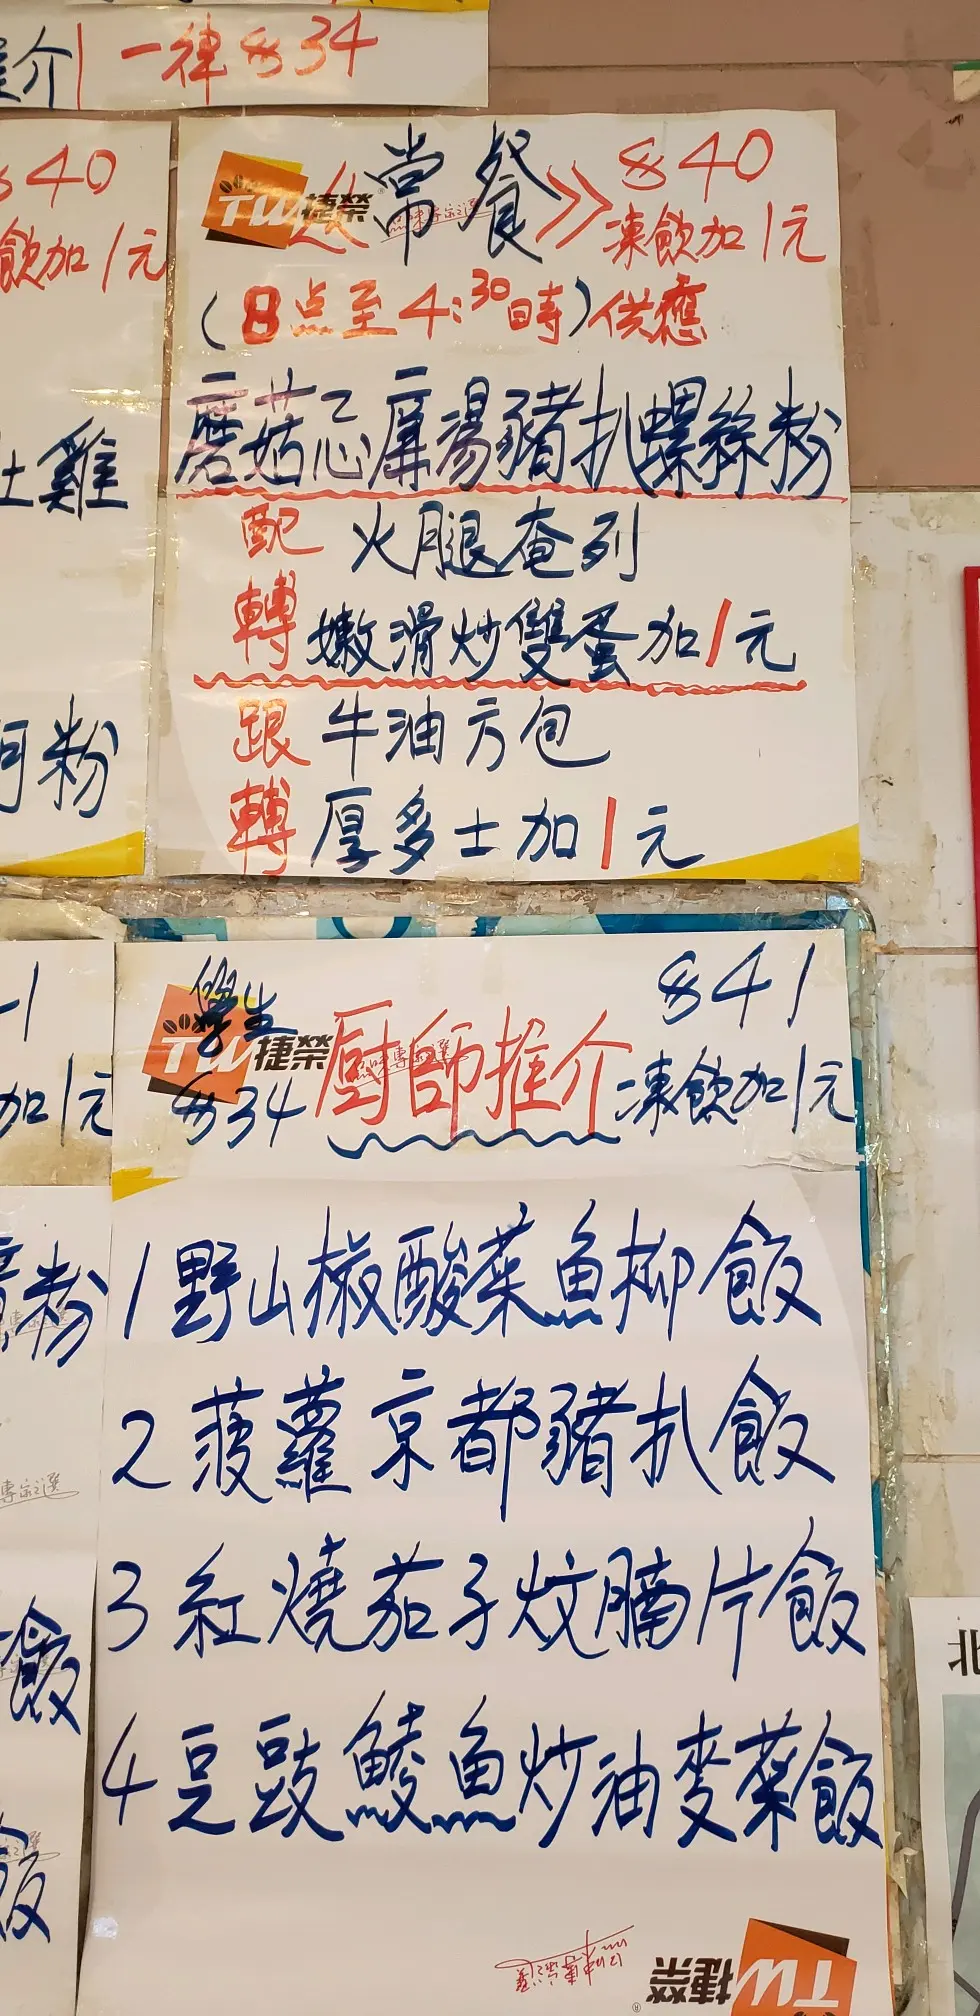 介 一律$34
$40
飲加1元
雞
粉
TW捷榮®
常餐》 $40
凍飲加1元
(8点至4:30時)供應
蘑菇忌廉湯豬扒螺絲粉
配 火腿奄列
轉 嫩滑炒雙蛋加1元
跟 牛油方包
轉 厚多士加1元
加1元
粉
飯
TW捷榮
學生
$34
廚師推介
$41
凍飲加1元
1 野山椒酸菜魚柳飯
2 菠蘿京都豬扒飯
3 紅燒茄子炆腩片飯
4 豆豉鯪魚炒油麥菜飯
TW捷榮®
北